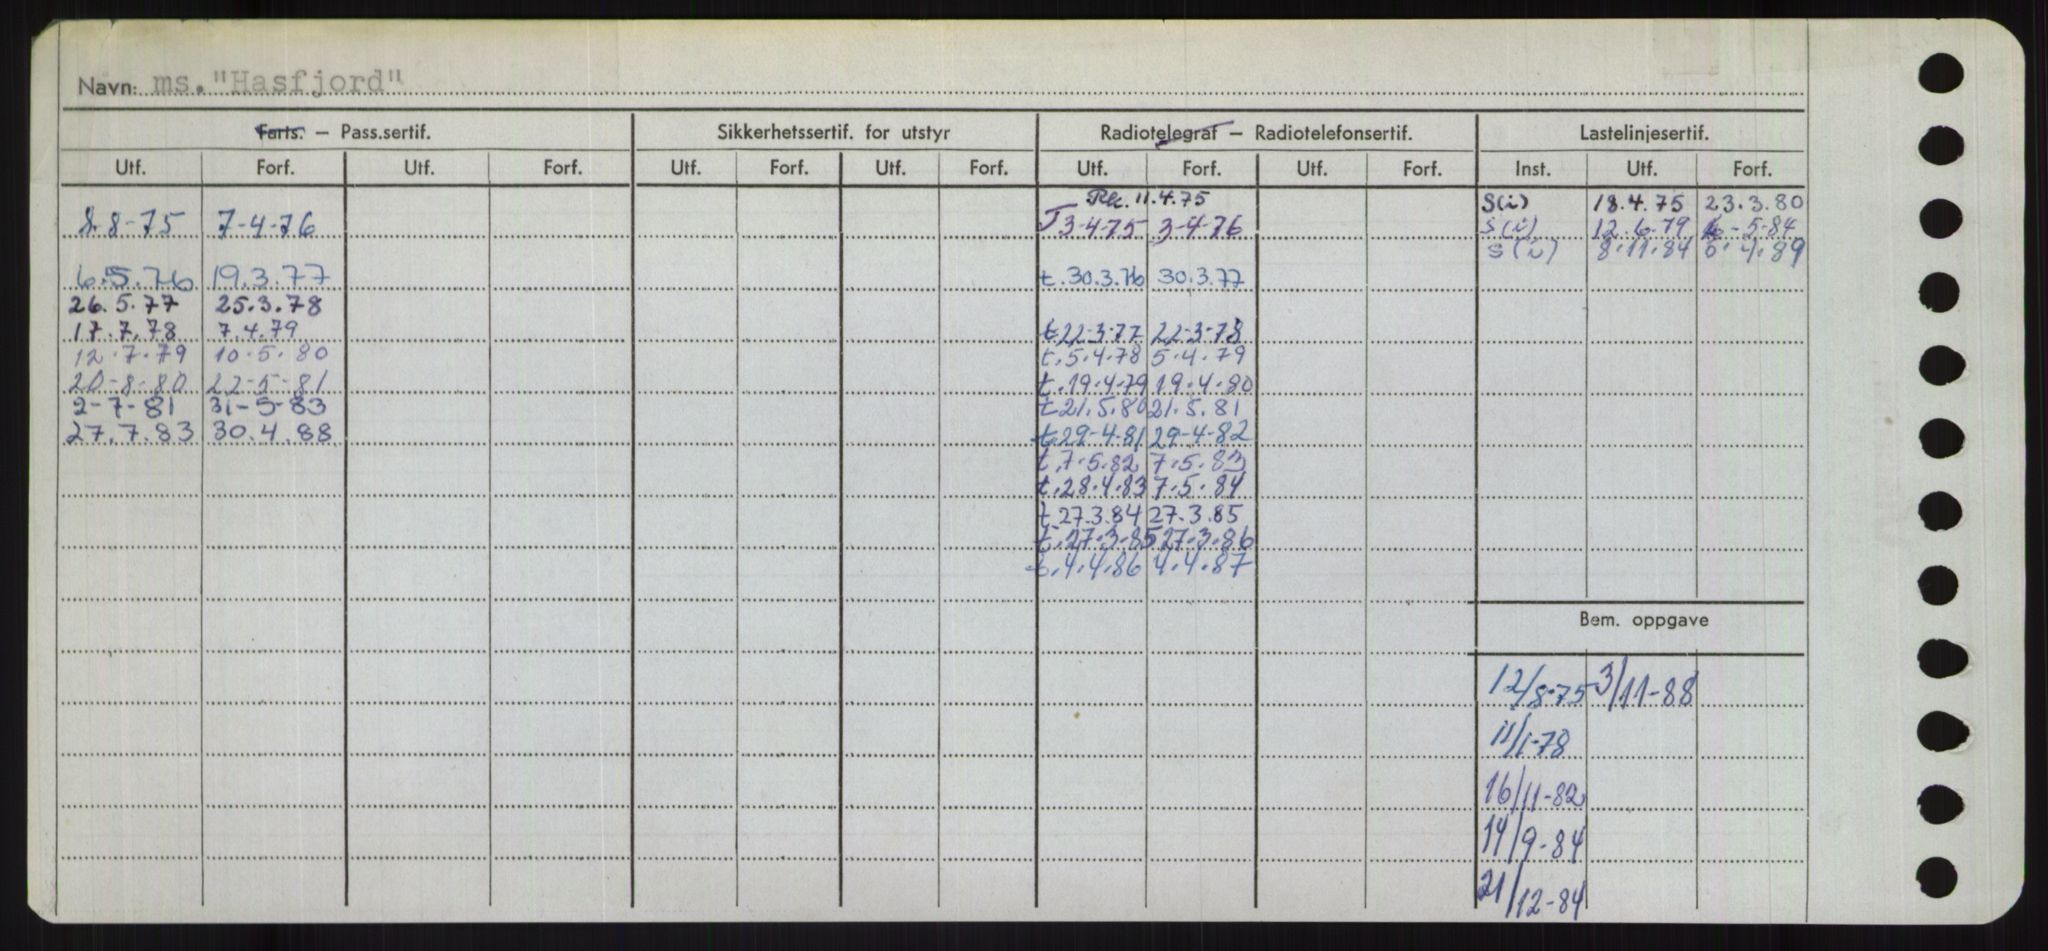 Navn: ms. "Hasfjord"
Farts. – Pass.sertif. Sikkerhetssertif. for utstyr Radiotelegraf – Radiotelefonsertif. Lastelinjesertif.
Utf. Forf. Utf. Forf. Utf. Forf. Utf. Forf. Utf. Forf. Utf. Forf. Inst. Utf. Forf.
11.4.75 S(i) 18.4.75 23.3.80
8.8-75 7-4-76 T 3-4-75 3-4-76 S(i) 12.6.79 6-5-84
S(i) 8.11.84 6.4.89
6.5.76 19.3.77 t.30.3.76 30.3.77
26.5.77 25.3.78
17.7.78 7.4.79 t.22-3-77 22-3-78
12.7.79 10.5.80 t.5.4.78 5.4.79
20-8-80 22-5-81 t.19.4.79 19.4.80
2-7-81 31-5-83 t.21.5.80 21.5.81
27.7.83 30.4.88 t.29-4-81 29-4-82
t.7.5.82 7.5.83
t.28.4.83 7.5.84
t.27.3.84 27.3.85
t.27.3.85 27.3.86
t.4.4.86 4.4.87
Bem. oppgave
12/8-75 3/11-88
11/1-78
16/11-82
14/9-84
21/12-84